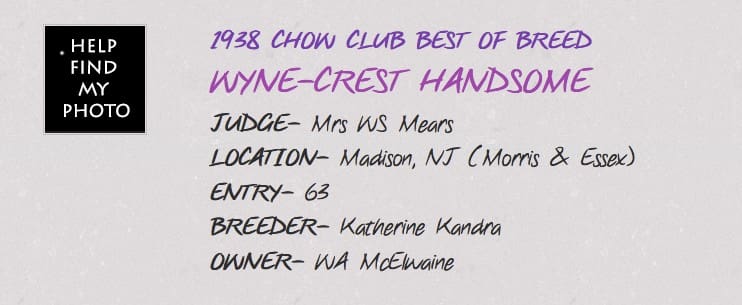 HELP
FIND
MY
PHOTO
1938 CHOW CLUB BEST OF BREED
WYNE-CREST HANDSOME
JUDGE- Mrs WS Mears
LOCATION- Madison, NJ (Morris & Essex)
ENTRY- 63
BREEDER- Katherine Kandra
OWNER- WA McElwaine